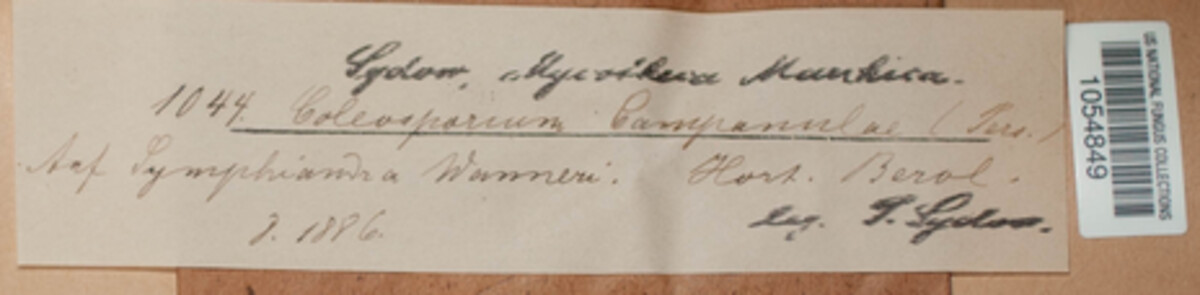 Sydow, Mycotheca Marchica.
1044. Coleosporium Campanulae (Pers.)
Auf Symphiandra Wanneri. Hort. Berol.
8. 1886. leg. P. Sydow.
US NATIONAL FUNGUS COLLECTIONS
1054849